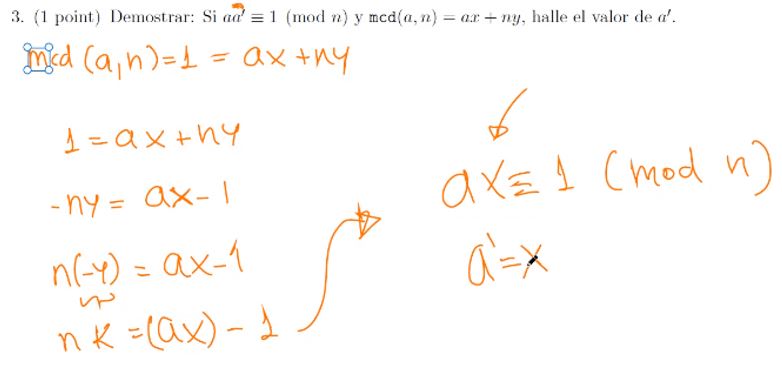 3. (1 point) Demostrar: Si aa' ≡ 1 (mod n) y mcd(a, n) = ax + ny, halle el valor de a'.
mcd (a,n)=1 = ax+ny
1 = ax+ny
-ny = ax-1
n(-y) = ax-1
nk =(ax) - 1
ax≡ 1 (mod n)
a'=x